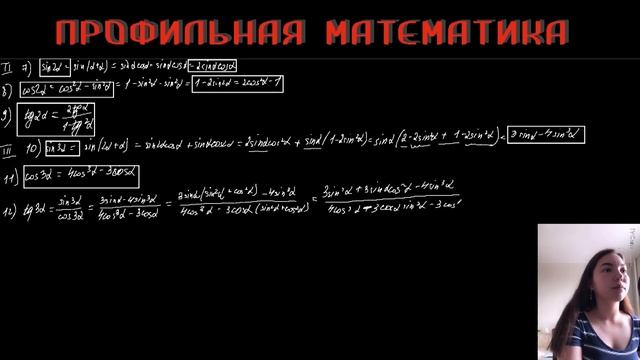 ПРОФИЛЬНАЯ МАТЕМАТИКА
II 7) sin2α = sin(α+α) = sinαcosα + sinαcosα = 2sinαcosα
8) cos2α = cos²α - sin²α = 1 - sin²α - sin²α = 1 - 2sin²α = 2cos²α - 1
9) tg2α = 2tgα / 1 - tg²α
III 10) sin3α = sin(2α+α) = sin2αcosα + sinαcos2α = 2sinαcos²α + sinα(1-2sin²α) = sinα(2-2sin²α + 1-2sin²α) = 3sinα - 4sin³α
11) cos3α = 4cos³α - 3cosα
12) tg3α = sin3α / cos3α = 3sinα - 4sin³α / 4cos³α - 3cosα = 3sinα(sin²α + cos²α) - 4sin³α / 4cos³α - 3cosα(sin²α + cos²α) = 3sin³α + 3sinαcos²α - 4sin³α / 4cos³α - 3cosα sin²α - 3cos³